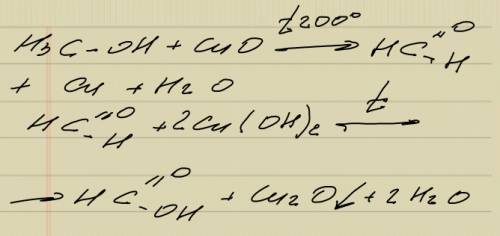 H3C-OH + CuO t200° → HC=O-H
+ Cu + H2O
HC=O-H + 2Cu(OH)2 t →
→ HC=O-OH + Cu2O↓ + 2H2O